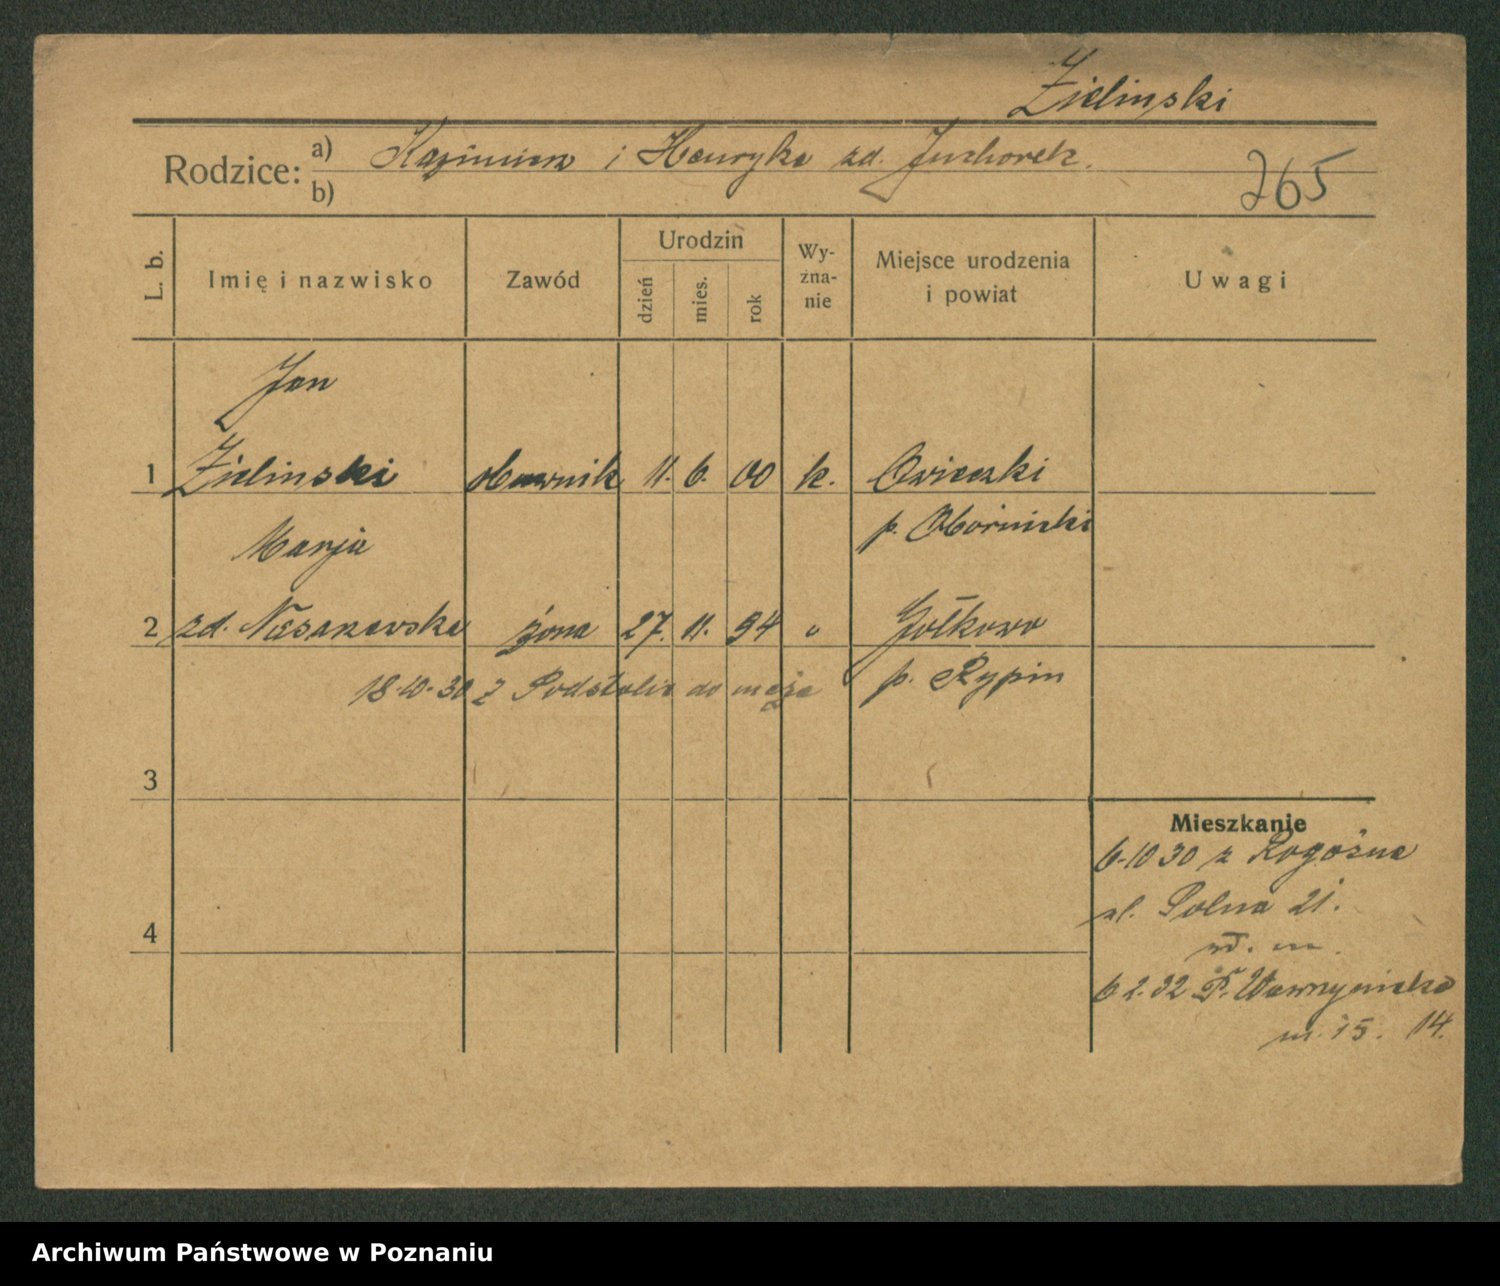 Zielinski
Rodzice: a) Kazimierz i Henryka zd. Juchorek.
b)
265
L. b.
Imię i nazwisko
Zawód
Urodzin
dzień
mies.
rok
Wy-
zna-
nie
Miejsce urodzenia
i powiat
Uwagi
Jan
1 Zielinski 11. 6. 00 k. Owieczki
p. Obornicki
Marja
2 zd. żona 27. 11. 94 " 
p. Rypin
18.10.30 z Podstolic do męża
3
Mieszkanie
6.10 30 z Rogoźna
ul. Polna 21.
4
6 2.32 Wawrzyniaka
m. 15. 14.
Archiwum Państwowe w Poznaniu